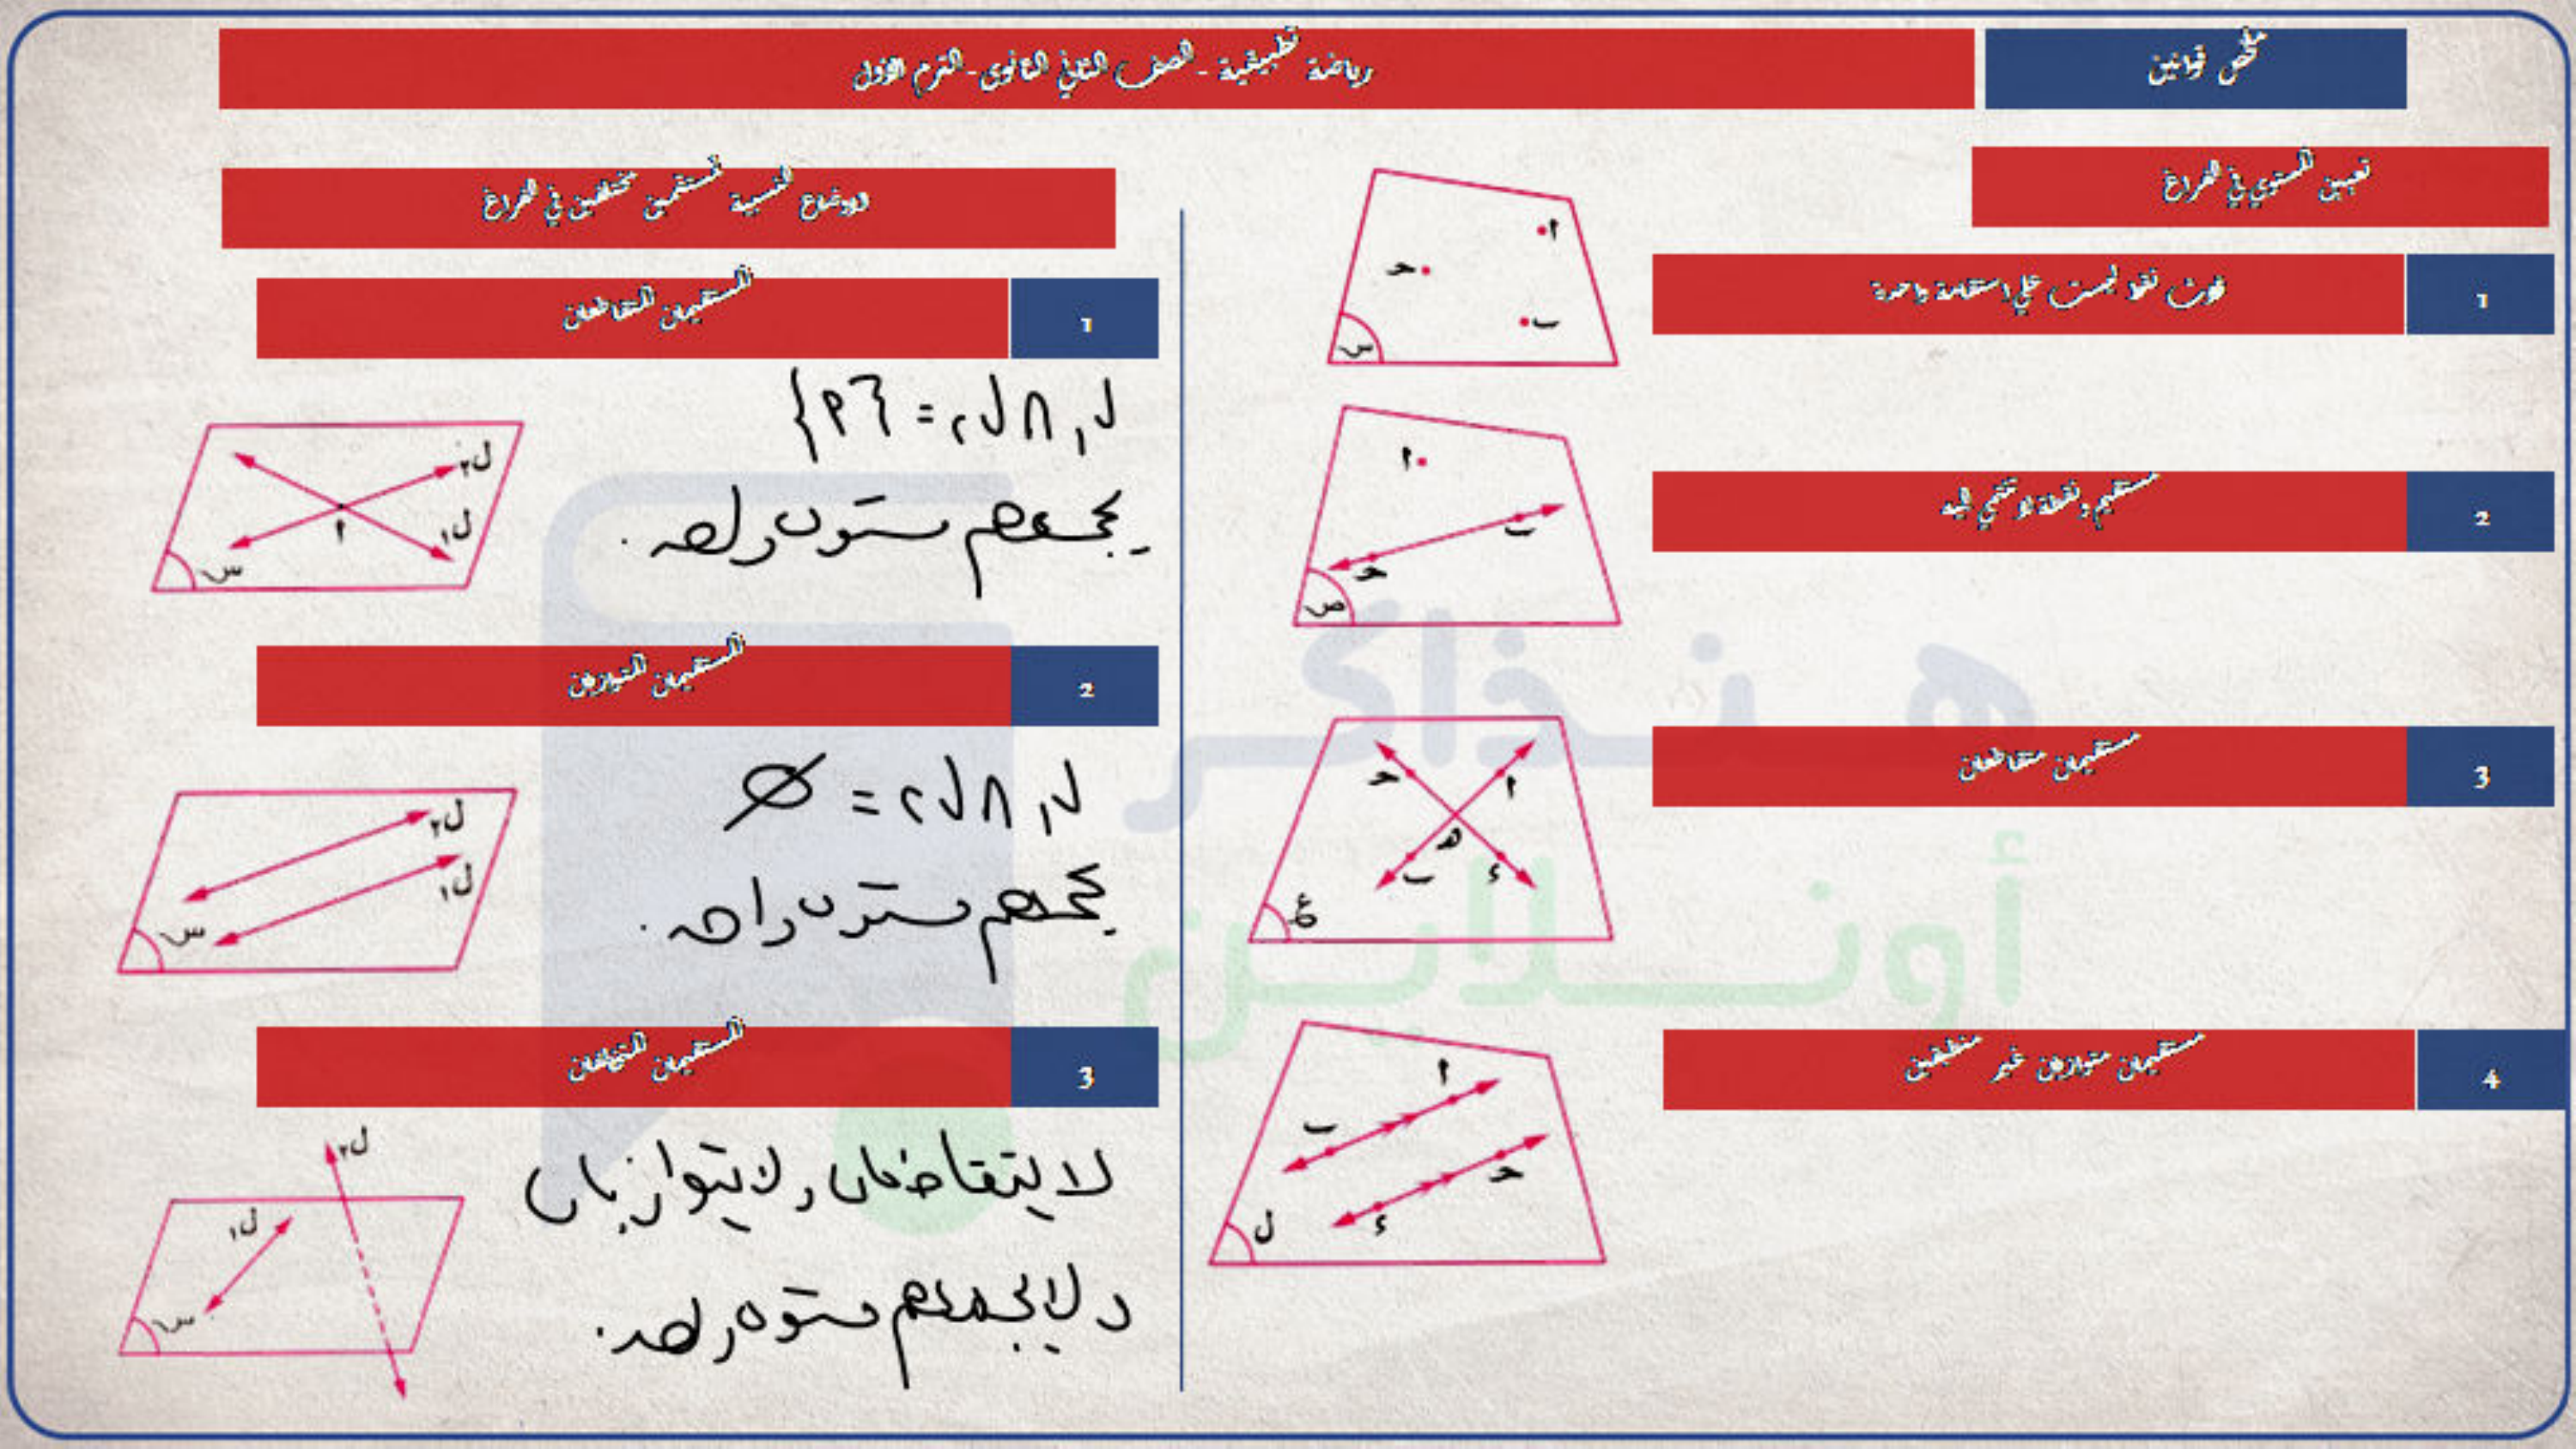 ملخص قوانين
رياضة تطبيقية - الصف الثاني الثانوى - الترم الأول
تعيين المستوي في الفراغ
1
ثلاث نقط ليست علي استقامة واحدة
ا
ح
ب
س
2
مستقيم ونقطة لا تنتمي اليه
ا
ب
ح
ص
3
مستقيمان متقاطعان
ح
ا
هـ
ب
ء
ع
4
مستقيمان متوازيان غير منطبقين
ا
ب
ح
ء
ل
الاوضاع النسبية لمستقمين مختلفين في الفراغ
1
المستقيمان المتقاطعان
ل١ ∩ ل٢ = {٢}
يجمعهم مستوى واحد.
ل٢
ل١
ا
س
2
المستقيمان المتوازيان
ل١ ∩ ل٢ = ∅
يجمعهم مستوى واحد.
ل٢
ل١
س
3
المستقيمان المتخالفان
لا يتقاطعان ولا يتوازيان
ولا يجمعهم مستوى واحد.
ل٢
ل١
س
هنذاكر
أونلاين